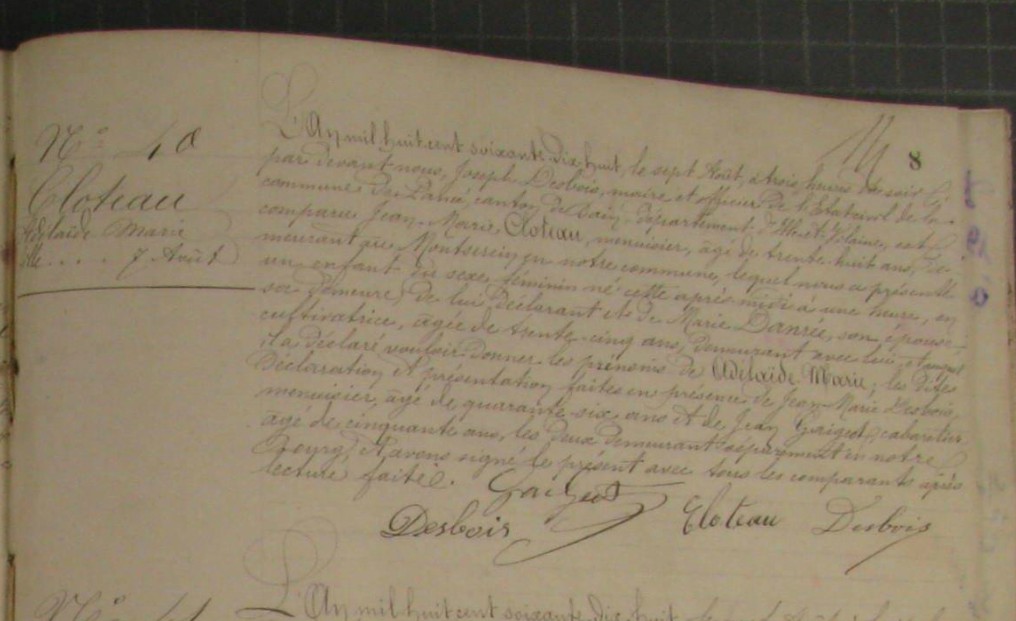 8
N° 40
Cloteau
Adélaïde Marie
7 Août
L'An mil huit cent soixante dix huit, le sept Août, à trois heures du soir,
par devant nous, Joseph Desbois, maire et officier de l'Etat civil de la
commune de Pancé, canton de Bain, département d'Ille et Vilaine, est
comparu Jean Marie Cloteau, menuisier, âgé de trente huit ans, de-
meurant au Montserein en notre commune, lequel nous a présenté
un enfant du sexe féminin né cette après midi à une heure, en
sa demeure, de lui déclarant et de Marie Danrée, son épouse,
cultivatrice, âgée de trente-cinq ans, demeurant avec lui, et auquel
il a déclaré vouloir donner les prénoms de Adélaïde Marie; les dites
déclaration et présentation faites en présence de Jean Marie Desbois,
menuisier, âgé de quarante six ans et de Jean Gaigeot, cabaretier,
âgé de cinquante ans, les deux demeurant séparément en notre
Bourg, et avons signé le présent avec tous les comparants après
lecture faite.
Gaigeot
Desbois Cloteau Desbois
N°
L'An mil huit cent soixante dix huit